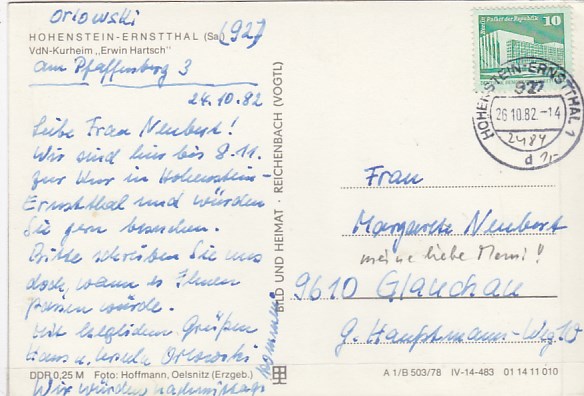 Orlowski
HOHENSTEIN-ERNSTTHAL (Sa.) (92)
VdN-Kurheim „Erwin Hartsch"
am Pfaffenberg 3
24.10.82
Liebe Frau Neubert!
Wir sind hier bis 8.11.
zur Kur in Hohenstein-
Ernstthal und würden
Sie gern besuchen.
Bitte schreiben Sie uns
doch, wann es Ihnen
passen würde.
Mit herzlichen Grüßen
Hans u. Ursula Orlowski
Wir würden nachmittags
kommen
DDR 0,25 M Foto: Hoffmann, Oelsnitz (Erzgeb.)
BILD UND HEIMAT · REICHENBACH (VOGTL)
Berlin Palast der Republik
10
HOHENSTEIN-ERNSTTHAL 1
26.10.82-14
d
Frau
Margarete Neubert
meine liebe Memi!
9610 Glauchau
G. Hauptmann-Weg 10
A 1/B 503/78 IV-14-483 01 14 11 010